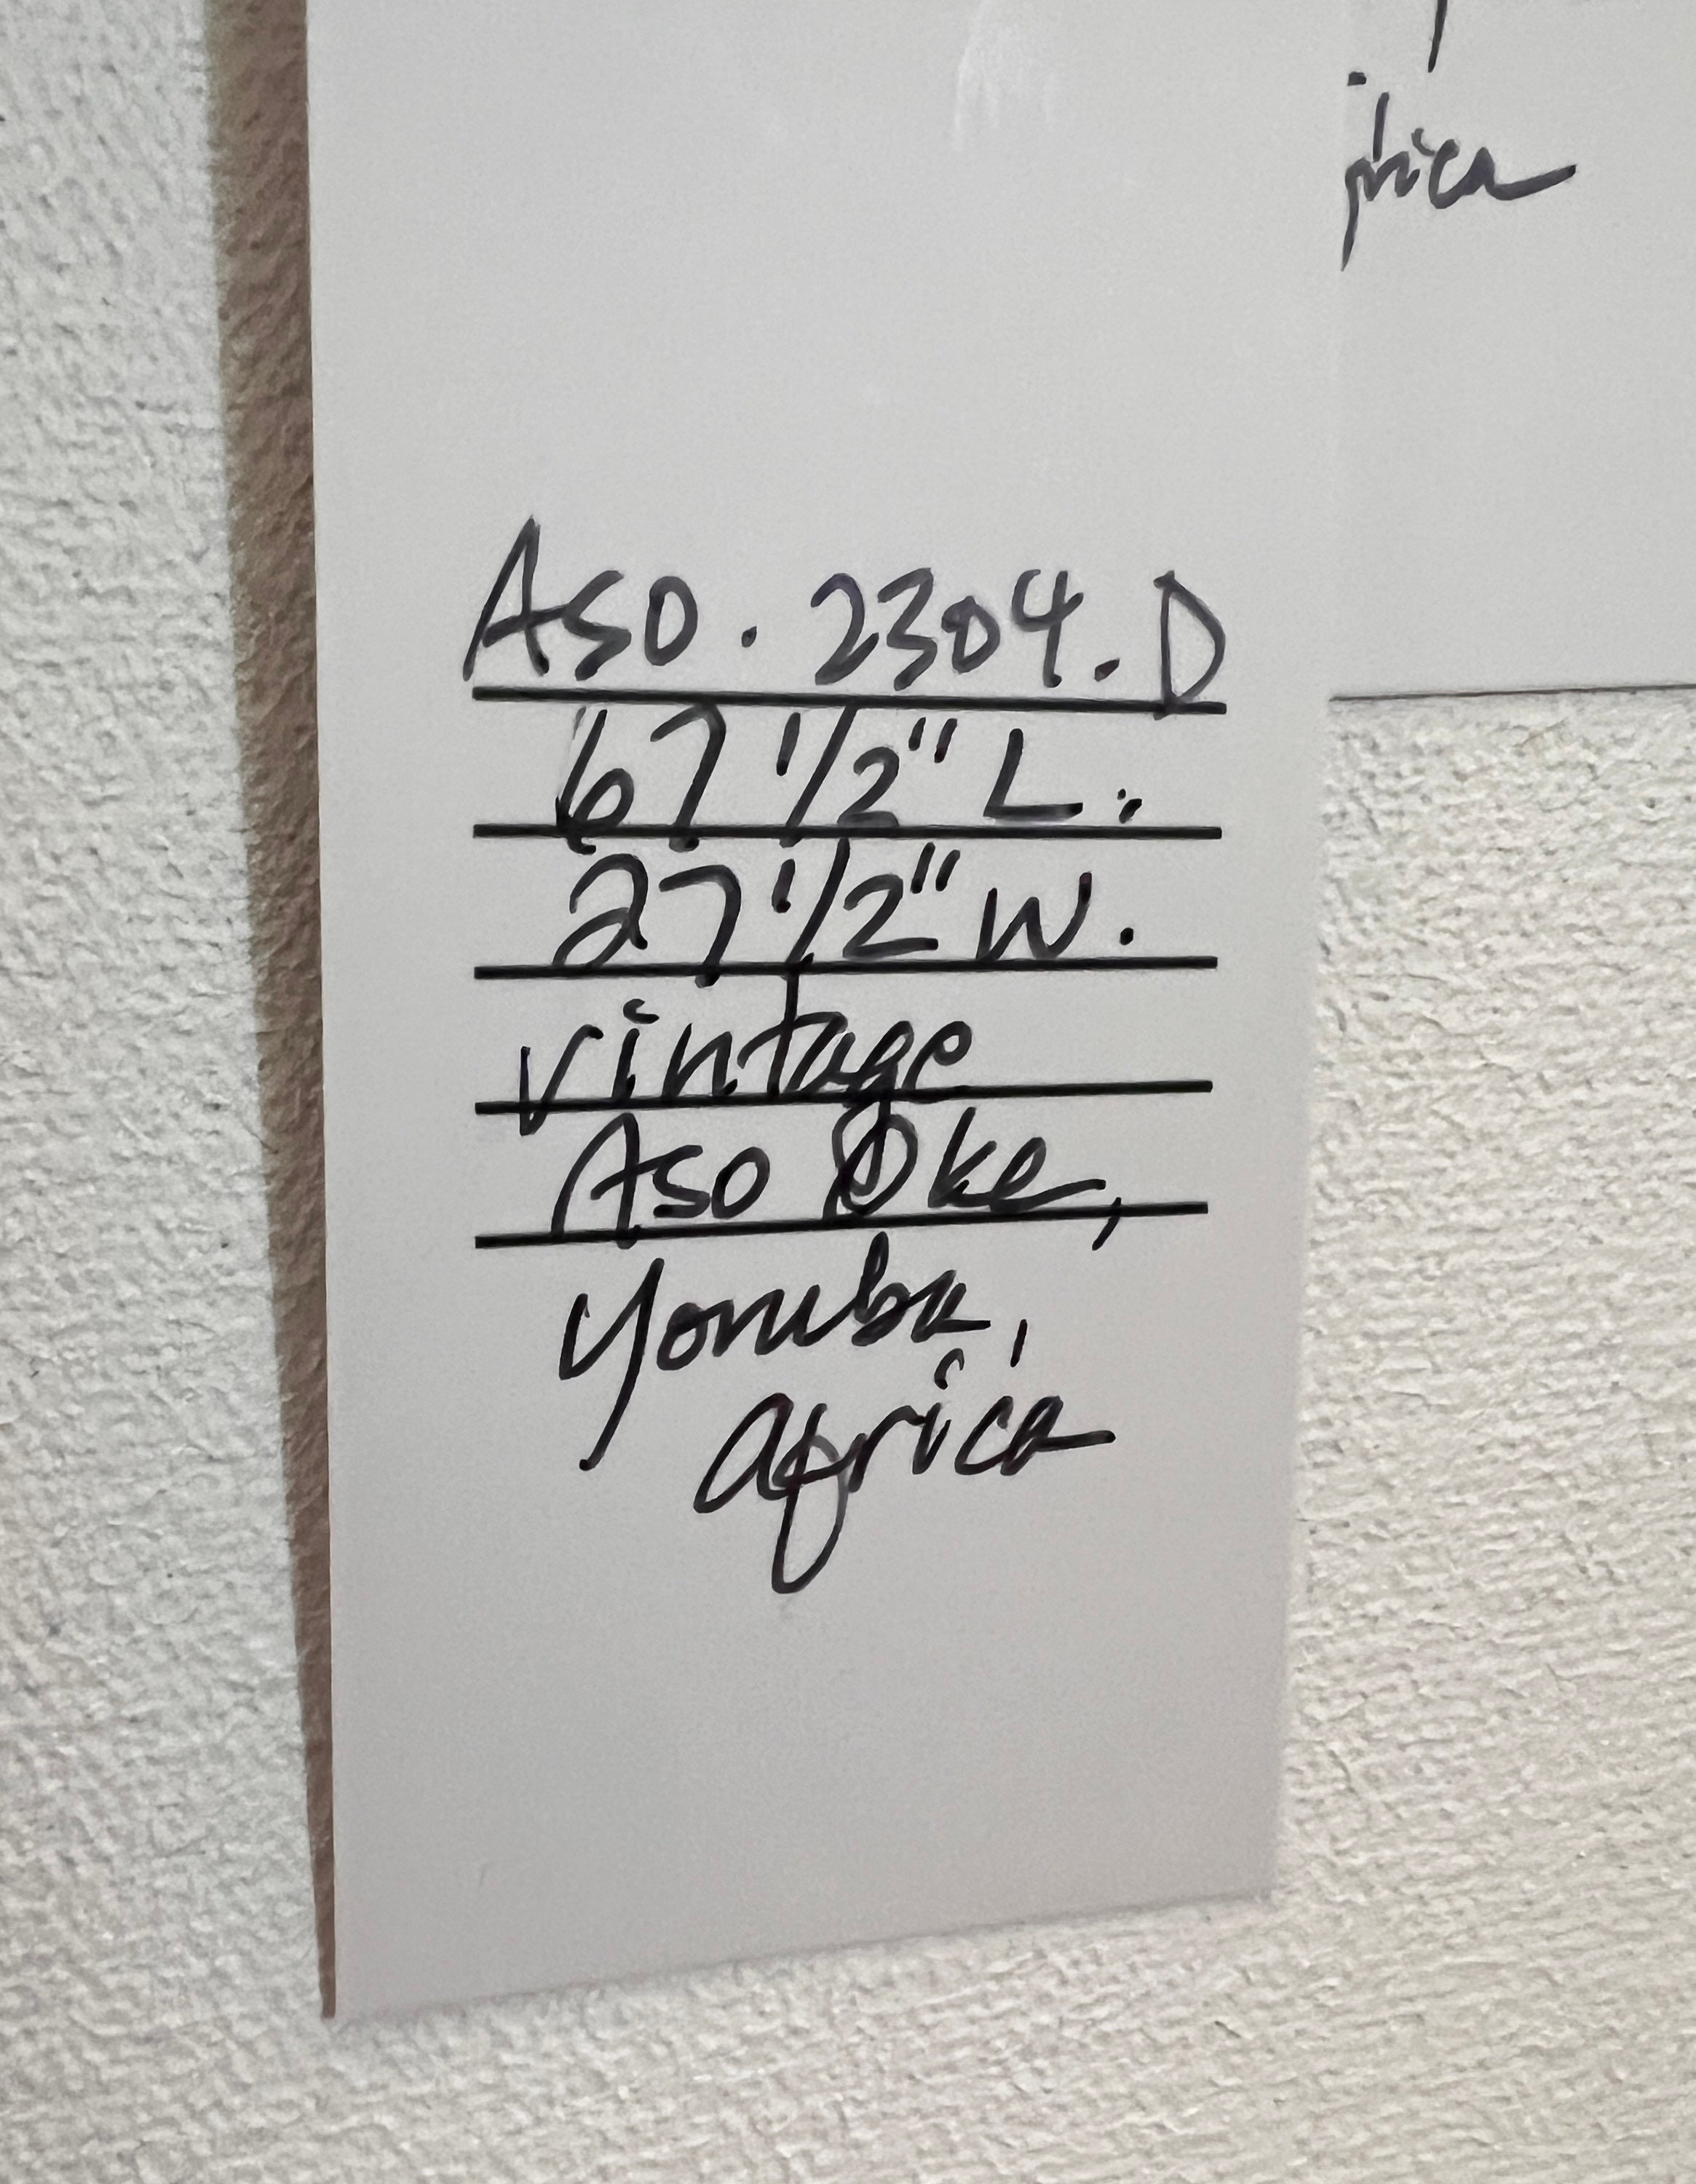 ASO. 2304. D
67 1/2" L.
27 1/2" W.
vintage
Aso Oke,
Yoruba,
africa